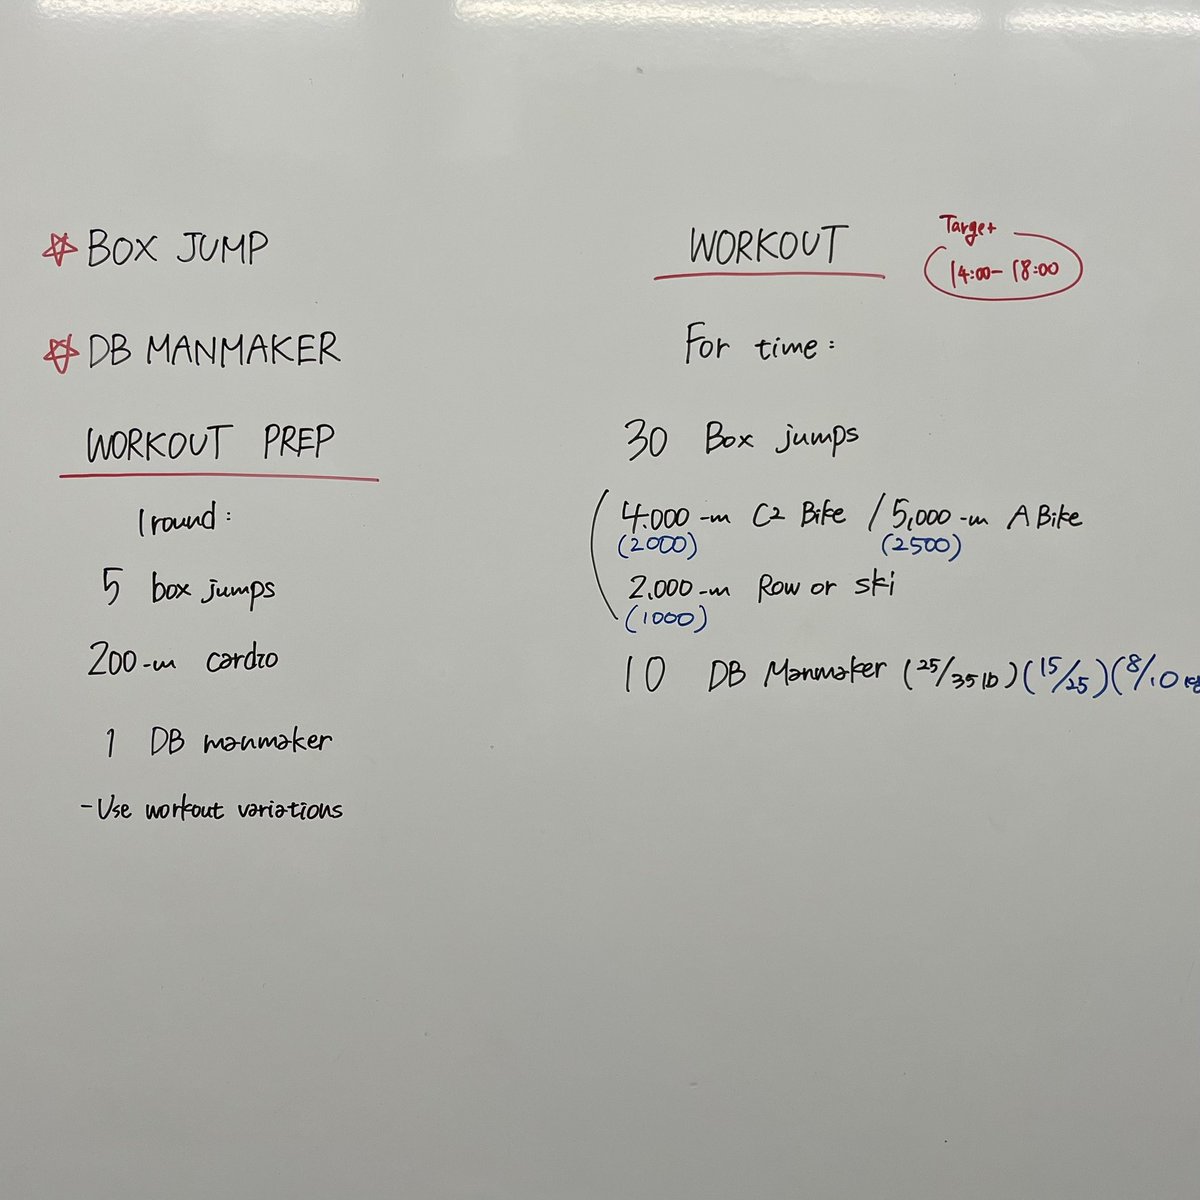 ☆ BOX JUMP
☆ DB MANMAKER
WORKOUT PREP
1 round:
5 box jumps
200-m cardio
1 DB manmaker
-Use workout variations
WORKOUT
Target
14:00-18:00
For time:
30 Box jumps
4.000-m C2 Bike / 5,000-m A Bike
(2000) (2500)
2.000-m Row or ski
(1000)
10 DB Manmaker (25/35 lb) (15/25) (8/10